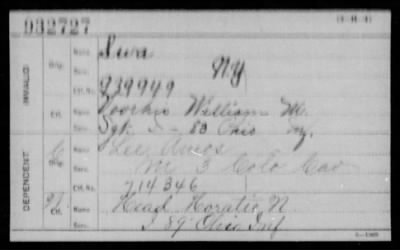 932727
INVALID.
Orig.
Name
Serv.
N.Y.
Ctf. No.
939949
Ctf.
Name Voorhis William M.
Serv. Sgt. I - 83 Ohio Inf.
DEPENDENT.
Orig.
Name Lee Amos
Serv. M 3 Colo Cav
Ctf. No.
714346
Ctf.
Name Head Horatio N.
Serv. I 89 Ohio Inf